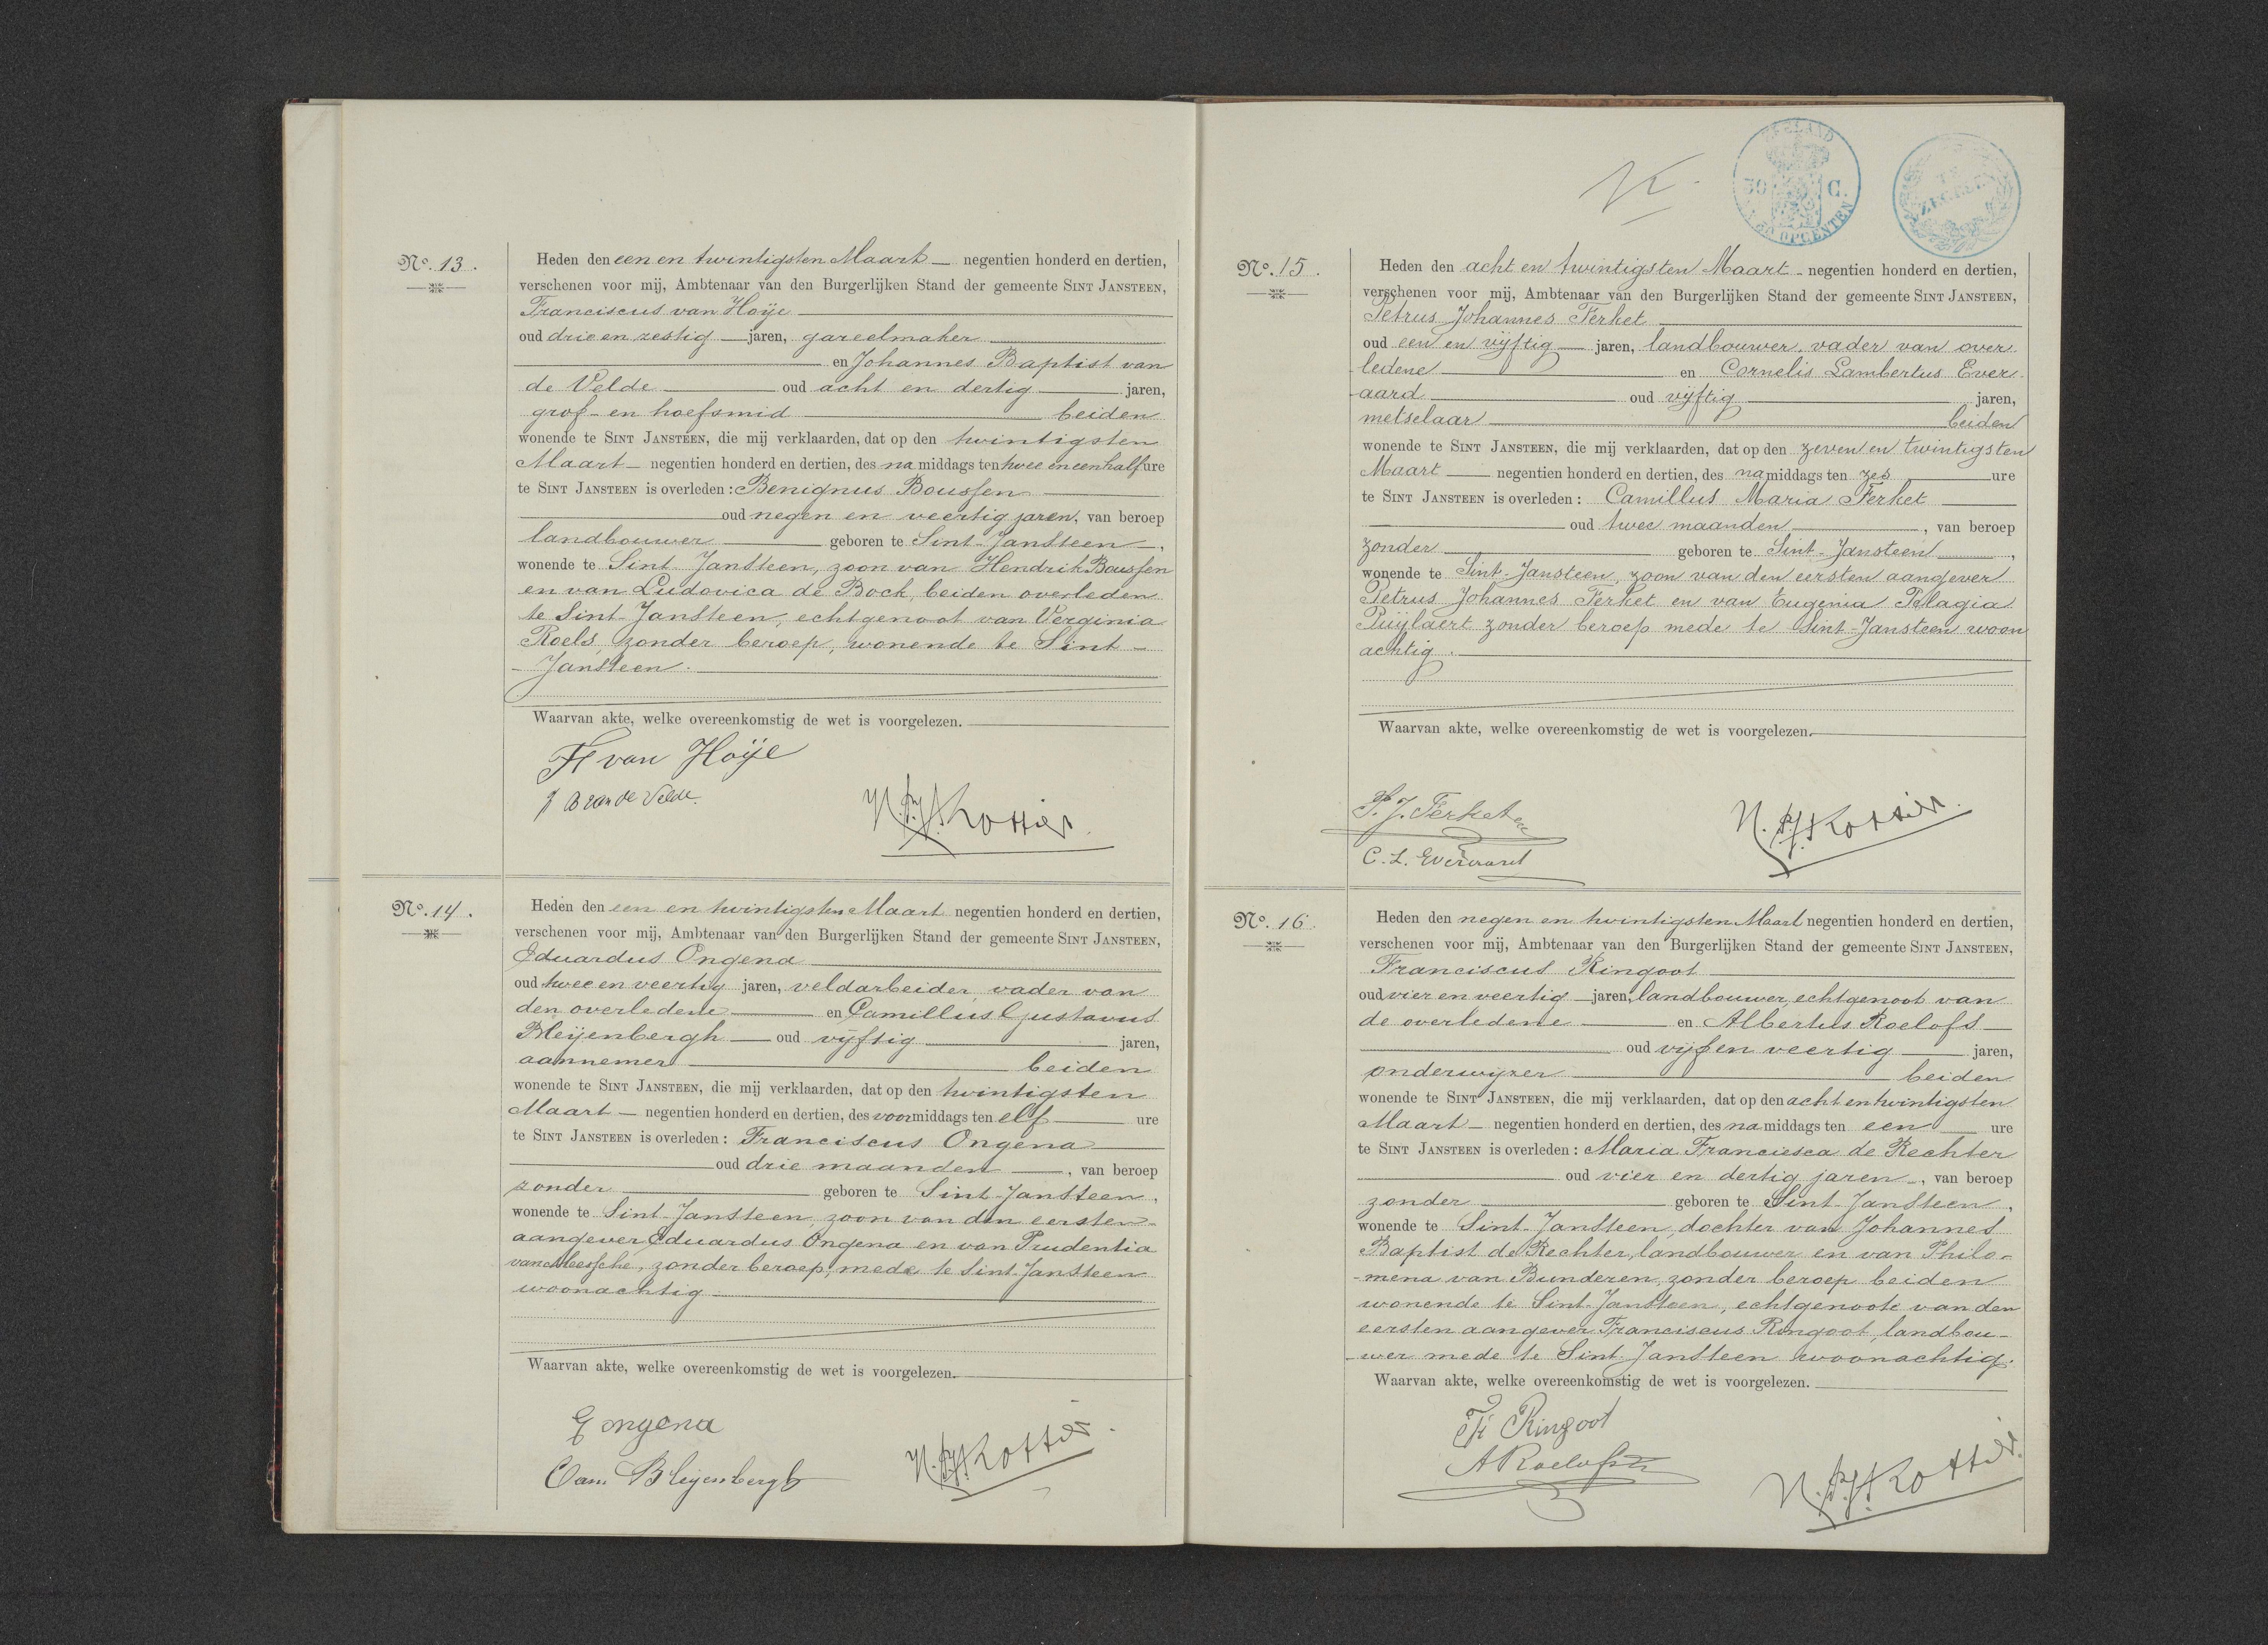 No. 13.
Heden den een en twintigsten Maart negentien honderd en dertien,
verschenen voor mij, Ambtenaar van den Burgerlijken Stand der gemeente SINT JANSTEEN,
Franciscus van Hoije
oud drie en zestig jaren, gareelmaker
en Johannes Baptist van
de Velde oud acht en dertig jaren,
grof- en hoefsmid beiden
wonende te SINT JANSTEEN, die mij verklaarden, dat op den twintigsten
Maart negentien honderd en dertien, des namiddags ten twee en een half ure
te SINT JANSTEEN is overleden: Benignus Boussen
oud negen en veertig jaren, van beroep
landbouwer geboren te Sint-Jansteen,
wonende te Sint Jansteen, zoon van Hendrik Boussen
en van Ludovica de Bock, beiden overleden
te Sint-Jansteen, echtgenoot van Verginia
Roels, zonder beroep, wonende te Sint-
-Jansteen.
Waarvan akte, welke overeenkomstig de wet is voorgelezen.
F van Hoije
J B van de Velde.
No. 14.
Heden den een en twintigsten Maart negentien honderd en dertien,
verschenen voor mij, Ambtenaar van den Burgerlijken Stand der gemeente SINT JANSTEEN,
Eduardus Ongena
oud twee en veertig jaren, veldarbeider, vader van
den overledene en Camillus Gustavus
Bleijenbergh oud vijftig jaren,
aannemer beiden
wonende te SINT JANSTEEN, die mij verklaarden, dat op den twintigsten
Maart negentien honderd en dertien, des voormiddags ten elf ure
te SINT JANSTEEN is overleden: Franciscus Ongena
oud drie maanden, van beroep
zonder geboren te Sint-Jansteen,
wonende te Sint-Jansteen, zoon van den eersten
aangever Eduardus Ongena en van Prudentia
zonder beroep, mede te Sint-Jansteen
woonachtig.
Waarvan akte, welke overeenkomstig de wet is voorgelezen.
E ongena
Cam Bleijenbergh
ZEELAND
50 C.
OPCENTEN
No. 15.
Heden den acht en twintigsten Maart negentien honderd en dertien,
verschenen voor mij, Ambtenaar van den Burgerlijken Stand der gemeente SINT JANSTEEN,
Petrus Johannes Ferket
oud een en vijftig jaren, landbouwer, vader van over
ledene en Cornelis Lambertus Ever-
aard oud vijftig jaren,
metselaar beiden
wonende te SINT JANSTEEN, die mij verklaarden, dat op den zeven en twintigsten
Maart negentien honderd en dertien, des namiddags ten zes ure
te SINT JANSTEEN is overleden: Camillus Maria Ferket
oud twee maanden, van beroep
zonder geboren te Sint-Jansteen,
wonende te Sint-Jansteen, zoon van den eersten aangever
Petrus Johannes Ferket en van Eugenia Pelagia
Puijlaert zonder beroep mede te Sint-Jansteen woon
achtig.
Waarvan akte, welke overeenkomstig de wet is voorgelezen.
P. J. Ferket
C. L. Everaard
No. 16.
Heden den negen en twintigsten Maart negentien honderd en dertien,
verschenen voor mij, Ambtenaar van den Burgerlijken Stand der gemeente SINT JANSTEEN,
Franciscus Ringoot
oud vier en veertig jaren, landbouwer, echtgenoot van
de overledene en Albertus Roelofs
oud vijf en veertig jaren,
onderwijzer beiden
wonende te SINT JANSTEEN, die mij verklaarden, dat op den acht en twintigsten
Maart negentien honderd en dertien, des namiddags ten een ure
te SINT JANSTEEN is overleden: Maria Franciesca de Rechter
oud vier en dertig jaren, van beroep
zonder geboren te Sint-Jansteen,
wonende te Sint-Jansteen, dochter van Johannes
Baptist de Rechter, landbouwer en van Philo-
-mena van Bunderen, zonder beroep beiden
wonende te Sint-Jansteen, echtgenoote van den
eersten aangever Franciscus Ringoot, landbou-
-wer mede te Sint-Jansteen woonachtig.
Waarvan akte, welke overeenkomstig de wet is voorgelezen.
Fr Ringoot
A Roelofs